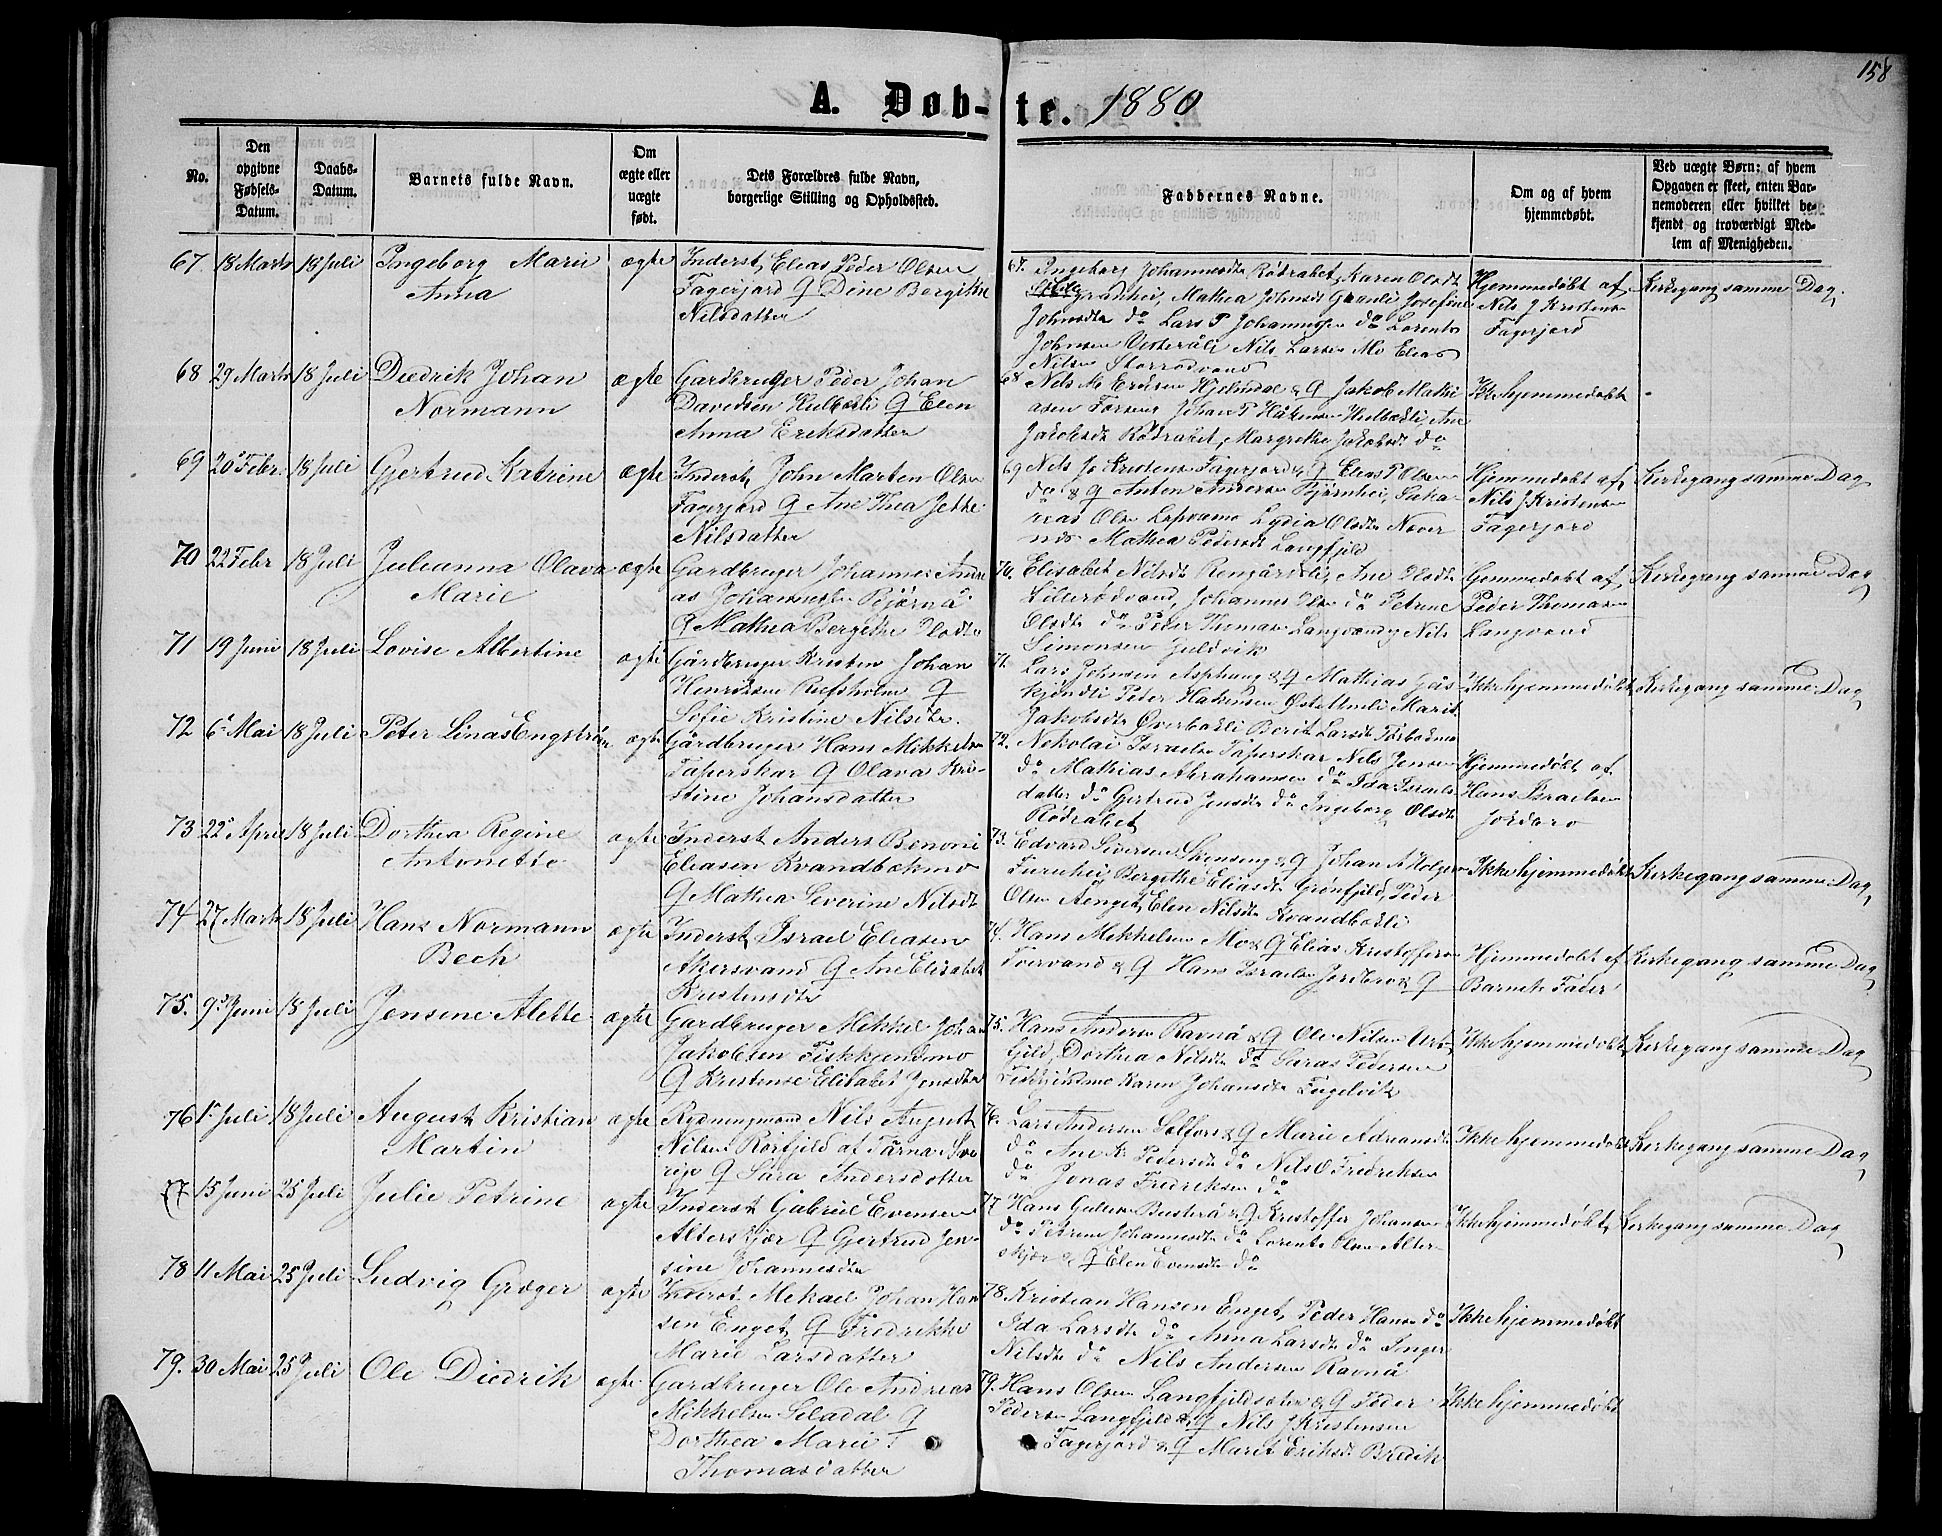 158
A. Døb-te. 1880
No.
Den opgivne Fødsels-Datum.
Daabs-Datum.
Barnets fulde Navn.
Om ægte eller uægte født.
Dets Forældres fulde Navn, borgerlige Stilling og Opholdssted.
Faddernes Navne.
Om og af hvem hjemmedøbt.
Ved uægte Børn: af hvem Opgaven er skeet, enten Barnemoderen eller hvilket bekjendt og troværdigt Medlem af Menigheden.
67. 18 Marts 18 Juli Ingeborg Marie ægte Inderst Elias Peder Olsen
Anna Fagerjord & Dine Bergitte
Nilsdatter
67. Ingeborg Johannesdtr Rödrabet, Karen Olsdtr
Granhei, Mathea Johnsdt Granli Josefine
Johnsdtr do Lars P Johannessen do Lorents
Johnsen Vesterali Nils Larsen Mo Elias
Nilsen Storrödvand
Hjemmedöbt af
Nils J Kristensen
Fagerjord
Kirkegang samme Dag.
68 29 Marts 18 Juli Diedrik Johan ægte Gardbruger Peder Johan
Normann Davidsen Kulbækli & Elen
Anna Eriksdatter
68 Nils M. Eriksen Hjelmdal & & Jakob Mathi
asen Forsenes Johan P Håkensen Kulbækli, Ane
Jakobsdt Rödrabet, Margrethe Jakobsdt do
Ikke hjemmedöbt
69 20 Febr. 18 Juli Gjertrud Katrine ægte Inderst John Marten Olsen
Fagerjord & Ane Thea Jette
Nilsdatter
69 Nils J. Kristensen Fagerjord & & Elias P Olsen
do & & Anton Andersen Bjørnhei, Saka-
rias Olsen Lydia Olsdtr Never
nes Mathea Pedersdt Langfjeld
Hjemmedöbt af
Nils J Kristensen
Fagerjord
Kirkegang samme Dag
70 22 Febr 18 Juli Julianna Olava ægte Gardbruger Johannes Andre
Marie as Johannessen Bjørnå
& Mathea Bergitte Olsdtr
70. Elisabet Nilsdt Rengårdsli, Ane Olsdtr
Lillerödvand, Johannes Olsen do Petrine
Olsdtr do Peder Thomasen Langvand, Nils
Simonsen Guldvik
Gjemmedöbt af
Peder Thomasen
Langvand
Kirkegang samme Dag
71 19 Juni 18 Juli Lovise Albertine ægte Gårdbruger Kristen Johan
Henriksen Rufsholm &
Sofie Kristine Nilsdtr.
71. Lars Johnsen Asphaug & & Mathias Gås-
kjöndli Peder Hakensen Marit
Jakobsdtr Överbækli Berit Larsdt
Ikke hjemmedöbt Kirkegang samme Dag
72 6 Mai 18 Juli Peter Linas Engström ægte Gårdbruger Hans Mikkelsen
Tåperskar & Olava Kri-
stine Johansdatter
72. Nekolai Israelsen Taperskar Nils Jensen
do Mathias Abrahamsen do Ida Israels
datter do Gertrud Jensdtr do Ingeborg Olsdtr
Rödrabet
Hjemmedöbt af
Hans Israelsen
Jordbro
73 22 April 18 Juli Dorthea Regine ægte Inderst Anders Benoni
Antonette Eliasen Kvandbækmo
& Mathea Severine Nilsdtr
73. Edvard Siversen Skenseng & & Johan A Holgersen
Furuhei, Bergithe Eliasdtr Grönfjeld, Peder
Olsen Aenget, Elen Nilsdtr Kvandbækli
Ikke hjemmedöbt Kirkegang samme Dag
74 27 Marts 18 Juli Hans Normann ægte Inderst Israel Eliasen
Bech Akersvand & Ane Elisabet
Kristensdtr
74. Hans Mikkelsen Mo & & Elias Kristoffersen
Tvervand & & Hans Israelsen Jordbro & &
Hjemmedöbt af
Barnets Fader
Kirkegang samme Dag
75. 9 Juni 18 Juli Jensine Alette ægte Gardbruger Mikkel Johan
Jakobsen Fiskkjændmo
& Kristense Elisabet Jensdtr
75. Hans Andersen Ravnå & & Ole Nilsen Urt-
fjeld, Dorthea Nilsdtr do Saras Pedersen
Karen Johansdtr Fugelvik
Ikke hjemmedöbt Kirkegang samme Dag
76 1 Juli 18 Juli August Kristian ægte Rydningsmand Nils August
Martin Nilsen Rörfjeld af Tärna Sve
rige & Sara Andersdatter
76. Lars Andersen Selfors & & Marie Adriansdtr
do Ane K Pedersdtr do Nils O Fredriksen
do Jonas Fredriksen do
Ikke hjemmedöbt Kirkegang samme Dag
77 15 Juni 25 Juli Julie Petrine ægte Inderst Gabriel Evensen
Alterskjær & Gjertrud Jen-
sine Johannesdtr
77 Hans Gulesen Busterå & & Kristoffer Johansen
do Petrine Johannesdtr do Lorents Olsen Alter-
skjær & & Elen Evensdtr do
Ikke hjemmedöbt Kirkegang samme Dag
78 11 Mai 25 Juli Ludvig Græger ægte Inderst Mekael Johan Han
sen Enget & Fredrikke
Marie Larsdatter
78. Kristian Hansen Enget, Peder Hansen do
Ida Larsdtr do Anna Larsdtr do Inger
Nilsdtr do Nils Andersen Ravnå
Ikke hjemmedöbt
79. 30 Mai 25 Juli Ole Diedrik ægte Gardbruger Ole Andreas
Mikkelsen Seladal &
Dorthea Marie
Thomasdatter
79. Hans Olsen Langfjeldsæter & & Peder
Pedersen Langfjeld & & Nils J Kristensen
Fagerjord & & Marit Eriksdt Bredik
Ikke hjemmedöbt